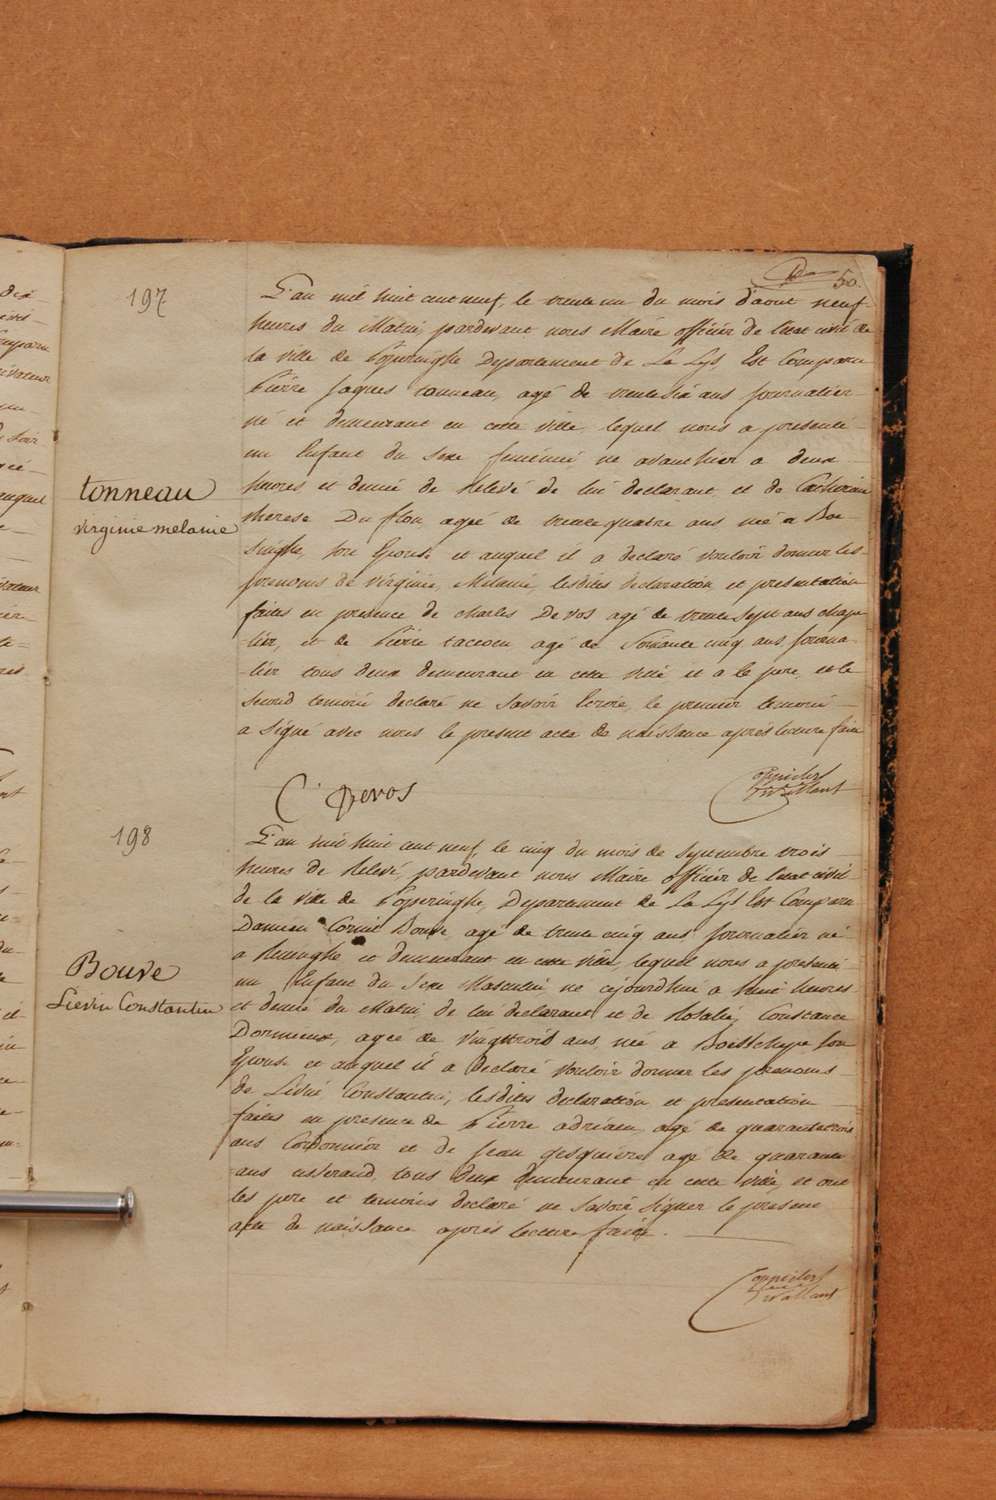 50.
197
L'an mil huit cent neuf, le trente un du mois d'aout neuf
heures du Matin, pardevant nous Maire officier de l'etat civil de
la ville de Poperinghe Departement de La Lys Est Comparu
Pierre Jaques tonneau, agé de trente six ans journalier
né et demeurant en cette ville, lequel nous a presenté
un Enfant du Sexe feminin né avant hier a deux
tonneau
virginie melanie
heures et demie de Relevé de lui declarant et de Catherine
therese Du flou agée de trente quatre ans née a Boe
singhe, son Epouse et auquel il a declaré vouloir donner les
prenoms de virginie, Melanie, lesdites declaration et presentation
faites en presence de Charles De vos agé de trente sept ans chape
-lier, et de Pierre taccoen agé de Soixante cinq ans journa
-lier tous deux demeurant en cette ville et a le pere, et le
second temoin declaré ne savoir Ecrire, le premier temoin
a signé avec nous le present acte de naissance aprés lecture faite
C: Devos
198
L'an mil huit cent neuf, le cinq du mois de Septembre trois
heures de Relevé, pardevant nous Maire officier de l'etat civil
de la ville de Poperinghe, Departement de La Lys Est Comparu
Damien Bouve agé de trente cinq ans journalier né
a et demeurant en cette ville, lequel nous a presenté
Bouve
Lievin Constantin
un Enfant du Sexe Masculin né cejourdhui a huit heures
et demie du Matin, de lui declarant et de Rosalie, Constance
Dormieux, agée de vingttrois ans, née a Boesschepe son
Epouse et auquel il a declaré vouloir donner les prenoms
de Livin Constantin, lesdites declaration et presentation
faites en presence de Pierre adriaen agé de quarantetrois
ans Cordonnier et de Jean gesquiere agé de quarante
ans tisserand, tous deux demeurant en cette ville, et ont
les pere et temoins declaré ne savoir signer le present
acte de naissance aprés lecture faite.